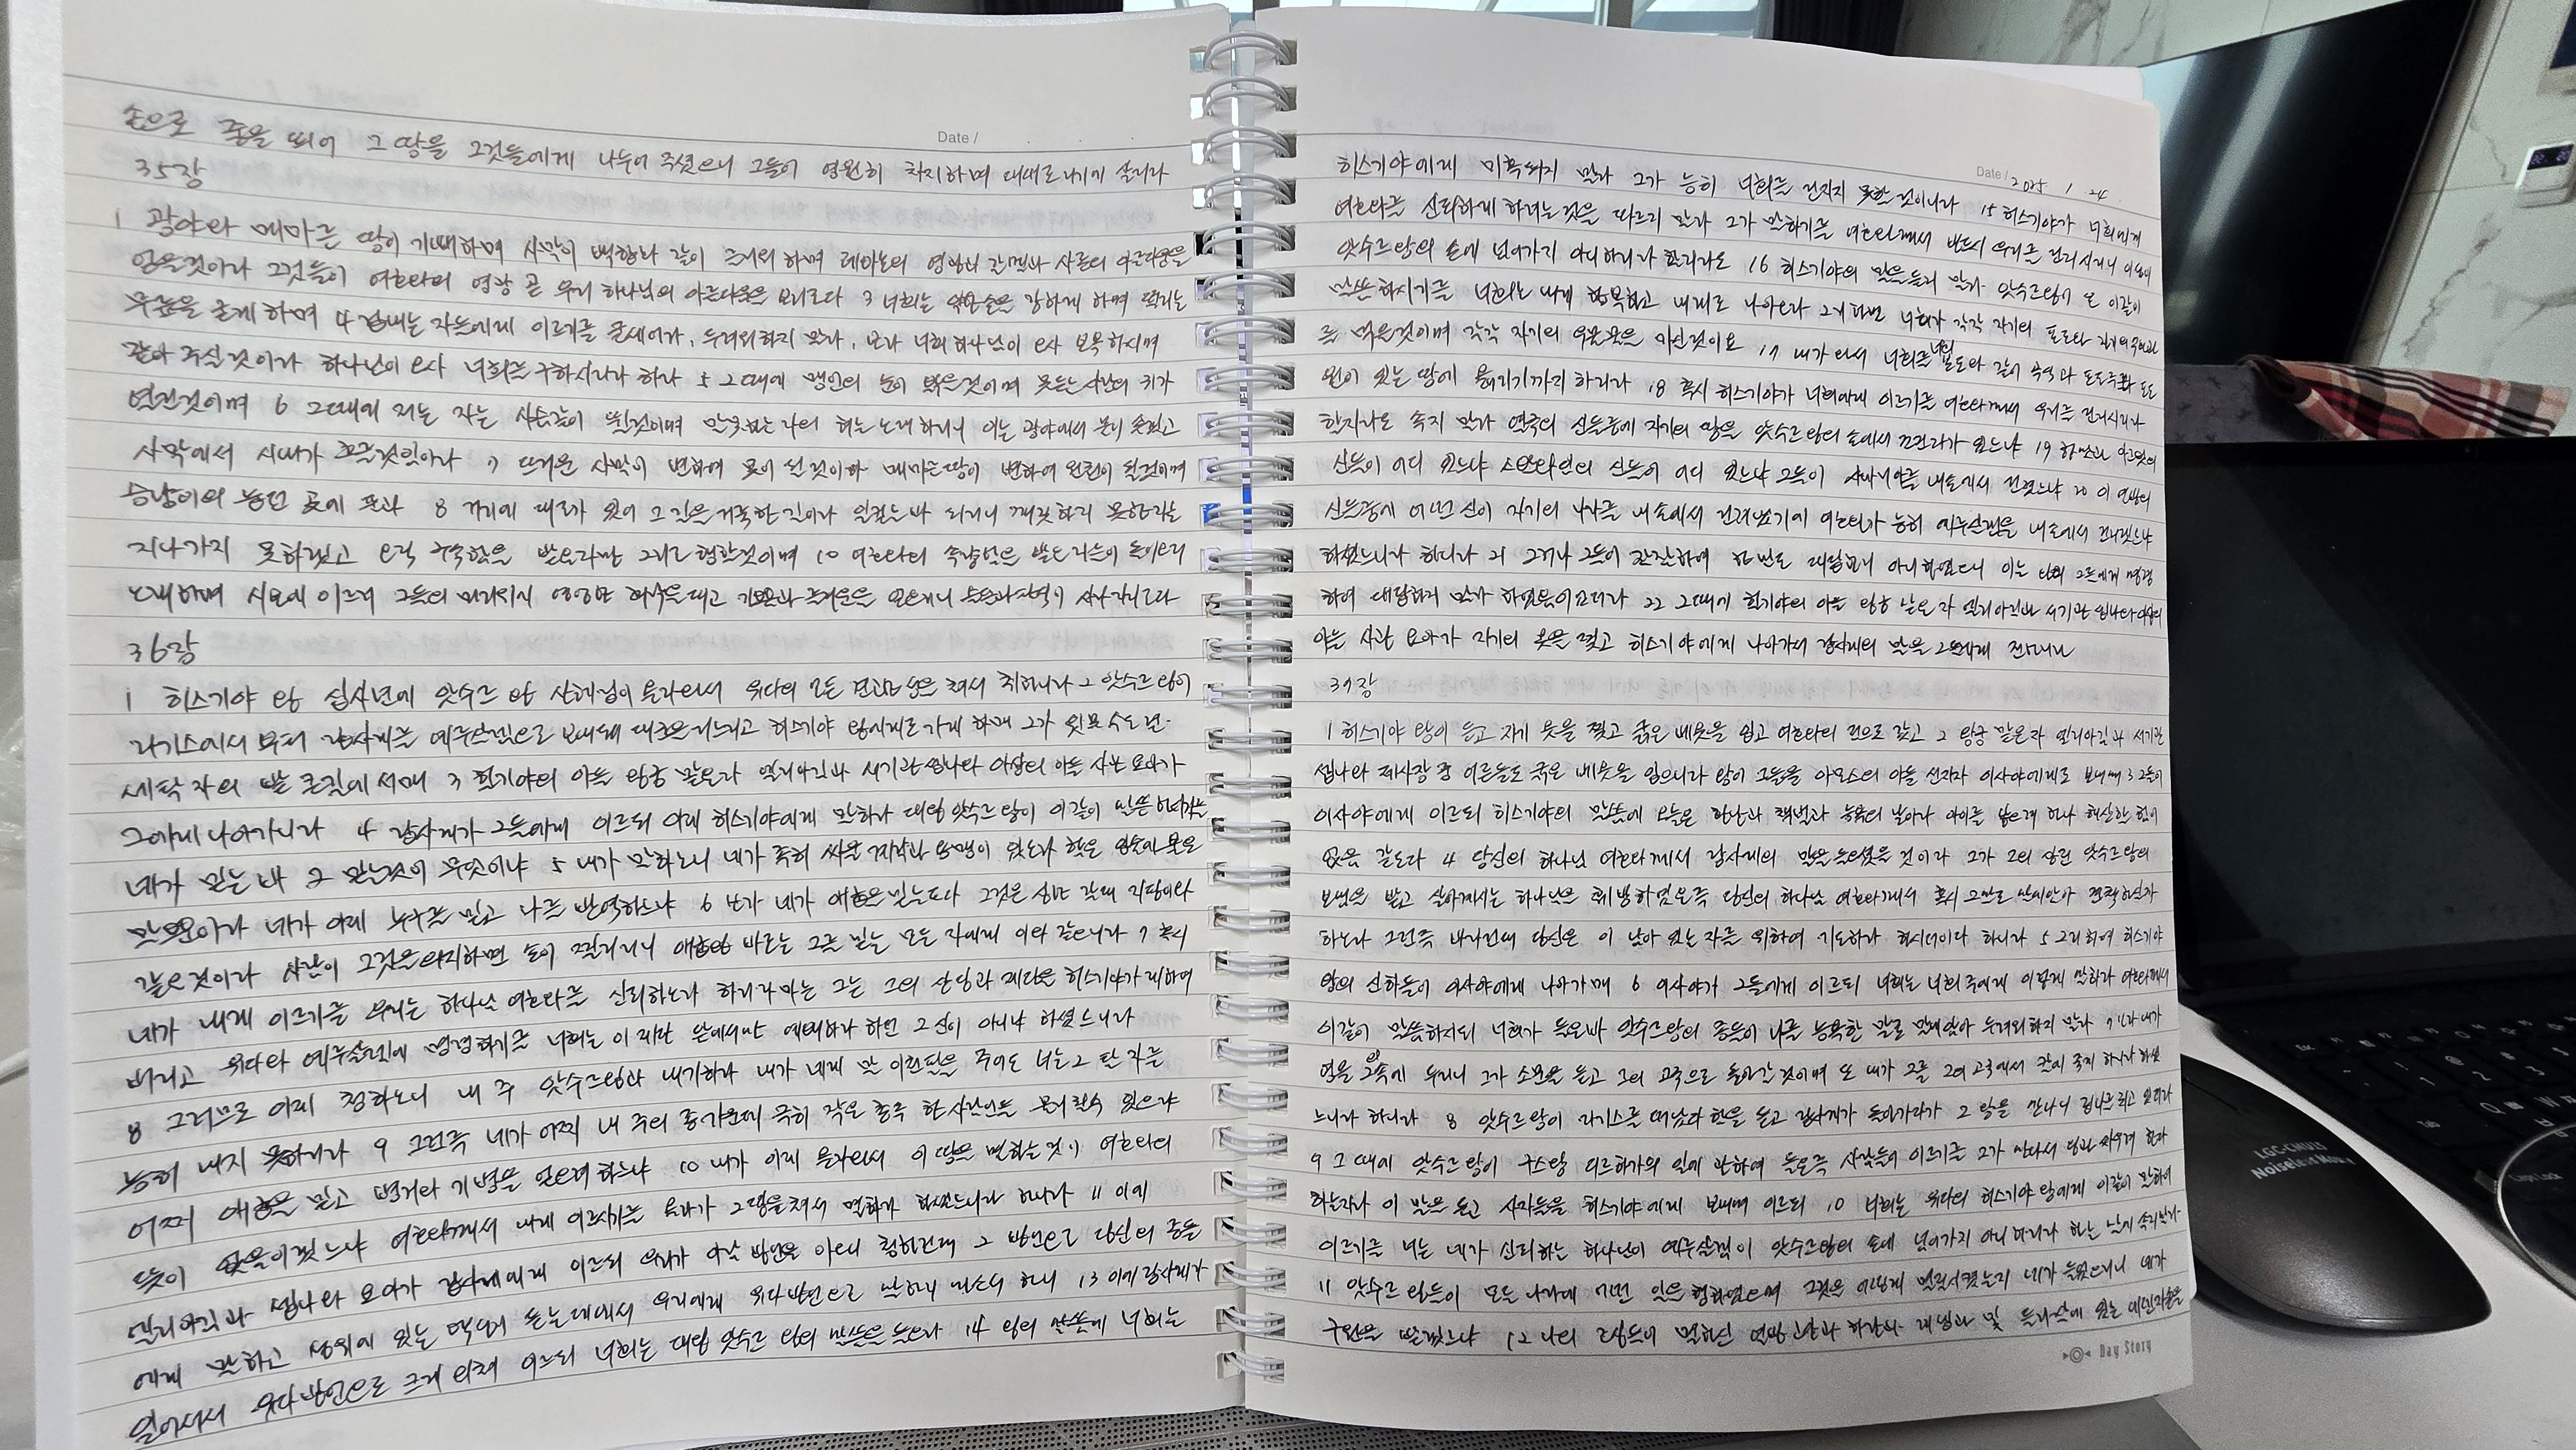 손으로 줄을 띄어 그 땅을 그것들에게 나누어 주셨으니 그들이 영원히 차지하며 대대로 거기에 살리라
Date /
35장
1 광야와 메마른 땅이 기뻐하며 사막이 백합화 같이 즐거워하며 레바논의 영광과 갈멜과 사론의 아름다움을
얻을것이라 그것들이 여호와의 영광 곧 우리 하나님의 아름다움을 보리로다 3 너희는 약한손을 강하게 하며 떨리는
무릎을 굳게 하며 4 겁내는 자들에게 이르기를 굳세어라, 두려워하지 말라, 보라 너희 하나님이 오사 보복하시며
갚아 주실것이라 하나님이 오사 너희를 구하시리라 하라 5 그때에 맹인의 눈이 밝을것이며 못듣는사람의 귀가
열릴것이며 6 그때에 저는 자는 사슴같이 뛸것이며 말못하는자의 혀는 노래하리니 이는 광야에서 물이 솟겠고
사막에서 시내가 흐를것임이라 7 뜨거운 사막이 변하여 못이 될것이며 메마른땅이 변하여 원천이 될것이며
승냥이의 눕던 곳에 풀과 8 거기에 대로가 있어 그 길은거룩한길이라 일컫는바 되리니 깨끗하지 못한자는
지나가지 못하겠고 오직 구속함을 받은자만 그리로 행할것이며 10 여호와의 속량함을 받은자들이 돌아오되
노래하며 시온에 이르러 그들의 머리위에 영영한 희락을 띠고 기쁨과 즐거움을 얻으리니 슬픔과탄식이 사라지리로다
36장
1 히스기야 왕 십사년에 앗수르 왕 산헤립이 올라와서 유다의 모든 견고한 성을 쳐서 취하니라 2 앗수르 왕이
라기스에서 부터 랍사게를 예루살렘으로 보내되 대군을거느리고 히스기야 왕에게로가게 하매 그가 윗못 수도 곁
세탁 자의 밭 큰길에 서매 3 힐기야의 아들 왕궁 맡은자 엘리아김과 서기관셉나와 아삽의 아들 사관 요아가
그에게나아가니라 4 랍사게가 그들에게 이르되 이제 히스기야에게 말하라 대왕 앗수르 왕이 이같이 말씀하시기를
네가 믿는 바 그 믿는것이 무엇이냐 5 내가 말하노니 네가 족히 싸울 계략과 용맹이 있노라 함은 입술에 붙은
말뿐이라 네가 이제 누구를 믿고 나를 반역하느냐 6 보라 네가 애굽을 믿는도다 그것은 상한 갈대 지팡이와
같은것이라 사람이 그것을의지하면 손이 찔리리니 애굽왕 바로는 그를 믿는 모든 자에게 이와 같으니라 7 혹시
네가 내게 이르기를 우리는 하나님 여호와를 신뢰하노라 하리라마는 그는 그의 산당과 제단을 히스기야가 제하여
버리고 유다와 예루살렘에 명령하기를 너희는 이 제단 앞에서만 예배하라 하던 그 신이 아니냐 하셨느니라
8 그러므로 이제 청하노니 내 주 앗수르왕과 내기하라 내가 네게 말 이천필을 주어도 너는 그 탈 자를
능히 내지 못하리라 9 그런즉 네가 어찌 내 주의 종가운데 극히 작은 총독 한사람인들 물리칠수 있으랴
어찌 애굽을 믿고 병거와 기병을 얻으려하느냐 10 내가 이제 올라와서 이 땅을 멸하는것이 여호와의
뜻이 없음이겠느냐 여호와께서 내게 이르시기를 올라가 그땅을쳐서 멸하라 하셨느니라 하니라 11 이에
엘리아김과 셉나와 요아가 랍사게에게 이르되 우리가 아람 방언을 아오니 청하건대 그 방언으로 당신의 종들
에게 말하고 성위에 있는 백성이 듣는데에서 우리에게 유다방언으로 말하지 마소서 하니 13 이에랍사게가
일어서서 유다방언으로 크게 외쳐 이르되 너희는 대왕 앗수르 왕의 말씀을 들으라 14 왕의 말씀에 너희는
Date / 2025 1 24
히스기야에게 미혹되지 말라 그가 능히 너희를 건지지 못할 것이니라 15 히스기야가 너희에게
여호와를 신뢰하게 하려는것을 따르지 말라 그가 말하기를 여호와께서 반드시 우리를 건지시리니 이성이
앗수르왕의 손에 넘어가지 아니하리라 할지라도 16 히스기야의 말을듣지 말라 앗수르왕이 또 이같이
말씀하시기를 너희는 내게 항복하고 내게로 나아오라 그리하면 너희가 각각 자기의 포도와 자기의무화과
를 먹을것이며 각각 자기의 우물물을 마실것이요 17 내가 와서 너희를 너희 본토와 같이 곡식과 포도주와 포도
원이 있는 땅에 옮기기까지 하리라 18 혹시 히스기야가 너희에게 이르기를 여호와께서 우리를 건지시리라
할지라도 속지 말라 열국의 신들중에 자기의 땅을 앗수르 왕의 손에서 건진자가 있느냐 19 하맛과 아르밧의
신들이 어디 있느냐 스발와임의 신들이 어디 있느냐 그들이 사마리아를 내손에서 건졌느냐 20 이 열방의
신들중에 어떤 신이 자기의 나라를 내 손에서 건져냈기에 여호와가 능히 예루살렘을 내 손에서 건지겠느냐
하셨느니라 하니라 21 그러나 그들이 잠잠하여 한 번도 대답하지 아니하였으니 이는 왕이 그들에게 명령
하여 대답하지 말라 하였음이었더라 22 그때에 힐기야의 아들 왕궁 맡은 자 엘리아김과 서기관 셉나와아삽의
아들 사관 요아가 자기의 옷을 찢고 히스기야에게 나아가서 랍사게의 말을 그에게 전하니라
37장
1 히스기야 왕이 듣고 자기 옷을 찢고 굵은 베옷을 입고 여호와의 전으로 갔고 2 왕궁 맡은자 엘리아김과 서기관
셉나와 제사장 중 어른들도 굵은 베옷을 입으니라 왕이 그들을 아모스의 아들 선지자 이사야에게로 보내매 3 그들이
이사야에게 이르되 히스기야의 말씀에 오늘은 환난과 책벌과 능욕의 날이라 아이를 낳으려 하나 해산할 힘이
없음 같도다 4 당신의 하나님 여호와께서 랍사게의 말을들으셨을 것이라 그가 그의 상전 앗수르왕의
보냄을 받고 살아계시는 하나님을 훼방하였은즉 당신의 하나님 여호와께서 혹시 그말로 말미암아 견책하실까
하노라 그런즉 바라건대 당신은 이 남아 있는 자를 위하여 기도하라 하시더이다 하니라 5 그리하여 히스기야
왕의 신하들이 이사야에게 나아가매 6 이사야가 그들에게 이르되 너희는 너희 주에게 이렇게 말하라 여호와께서
이같이 말씀하시되 너희가 들은바 앗수르왕의 종들이 나를 능욕한 말로 말미암아 두려워하지 말라 7 보라 내가
영을 그의 속에 두리니 그가 소문을 듣고 그의 고국으로 돌아갈것이며 또 내가 그를 그의 고국에서 칼에 죽게 하리라 하셨
느니라 하니라 8 앗수르왕이 라기스를 떠났다 함을 듣고 랍사게가 돌아가다가 그 왕을 만나니 립나를 치고 있더라
9 그 때에 앗수르 왕이 구스왕 디르하가의 일에 관하여 들은즉 사람들이 이르기를 그가 나와서 왕과 싸우려 한다
하는지라 이 말을 듣고 사자들을 히스기야에게 보내며 이르되 10 너희는 유다의 히스기야 왕에게 이같이 말하여
이르기를 너는 네가 신뢰하는 하나님이 예루살렘이 앗수르왕의 손에 넘어가지 아니하리라 하는 말에 속지말라
11 앗수르 왕들이 모든 나라에 어떤 일을 행하였으며 그것을 어떻게 멸절시켰는지 네가 들었으리니 네가
구원을 받겠느냐 12 나의 조상들이 멸하신 열방 고산과 하란과 레셉과 및 들라살에 있는 에덴자손을
Day Story
LGC-CMU15
Noiseless Mouse